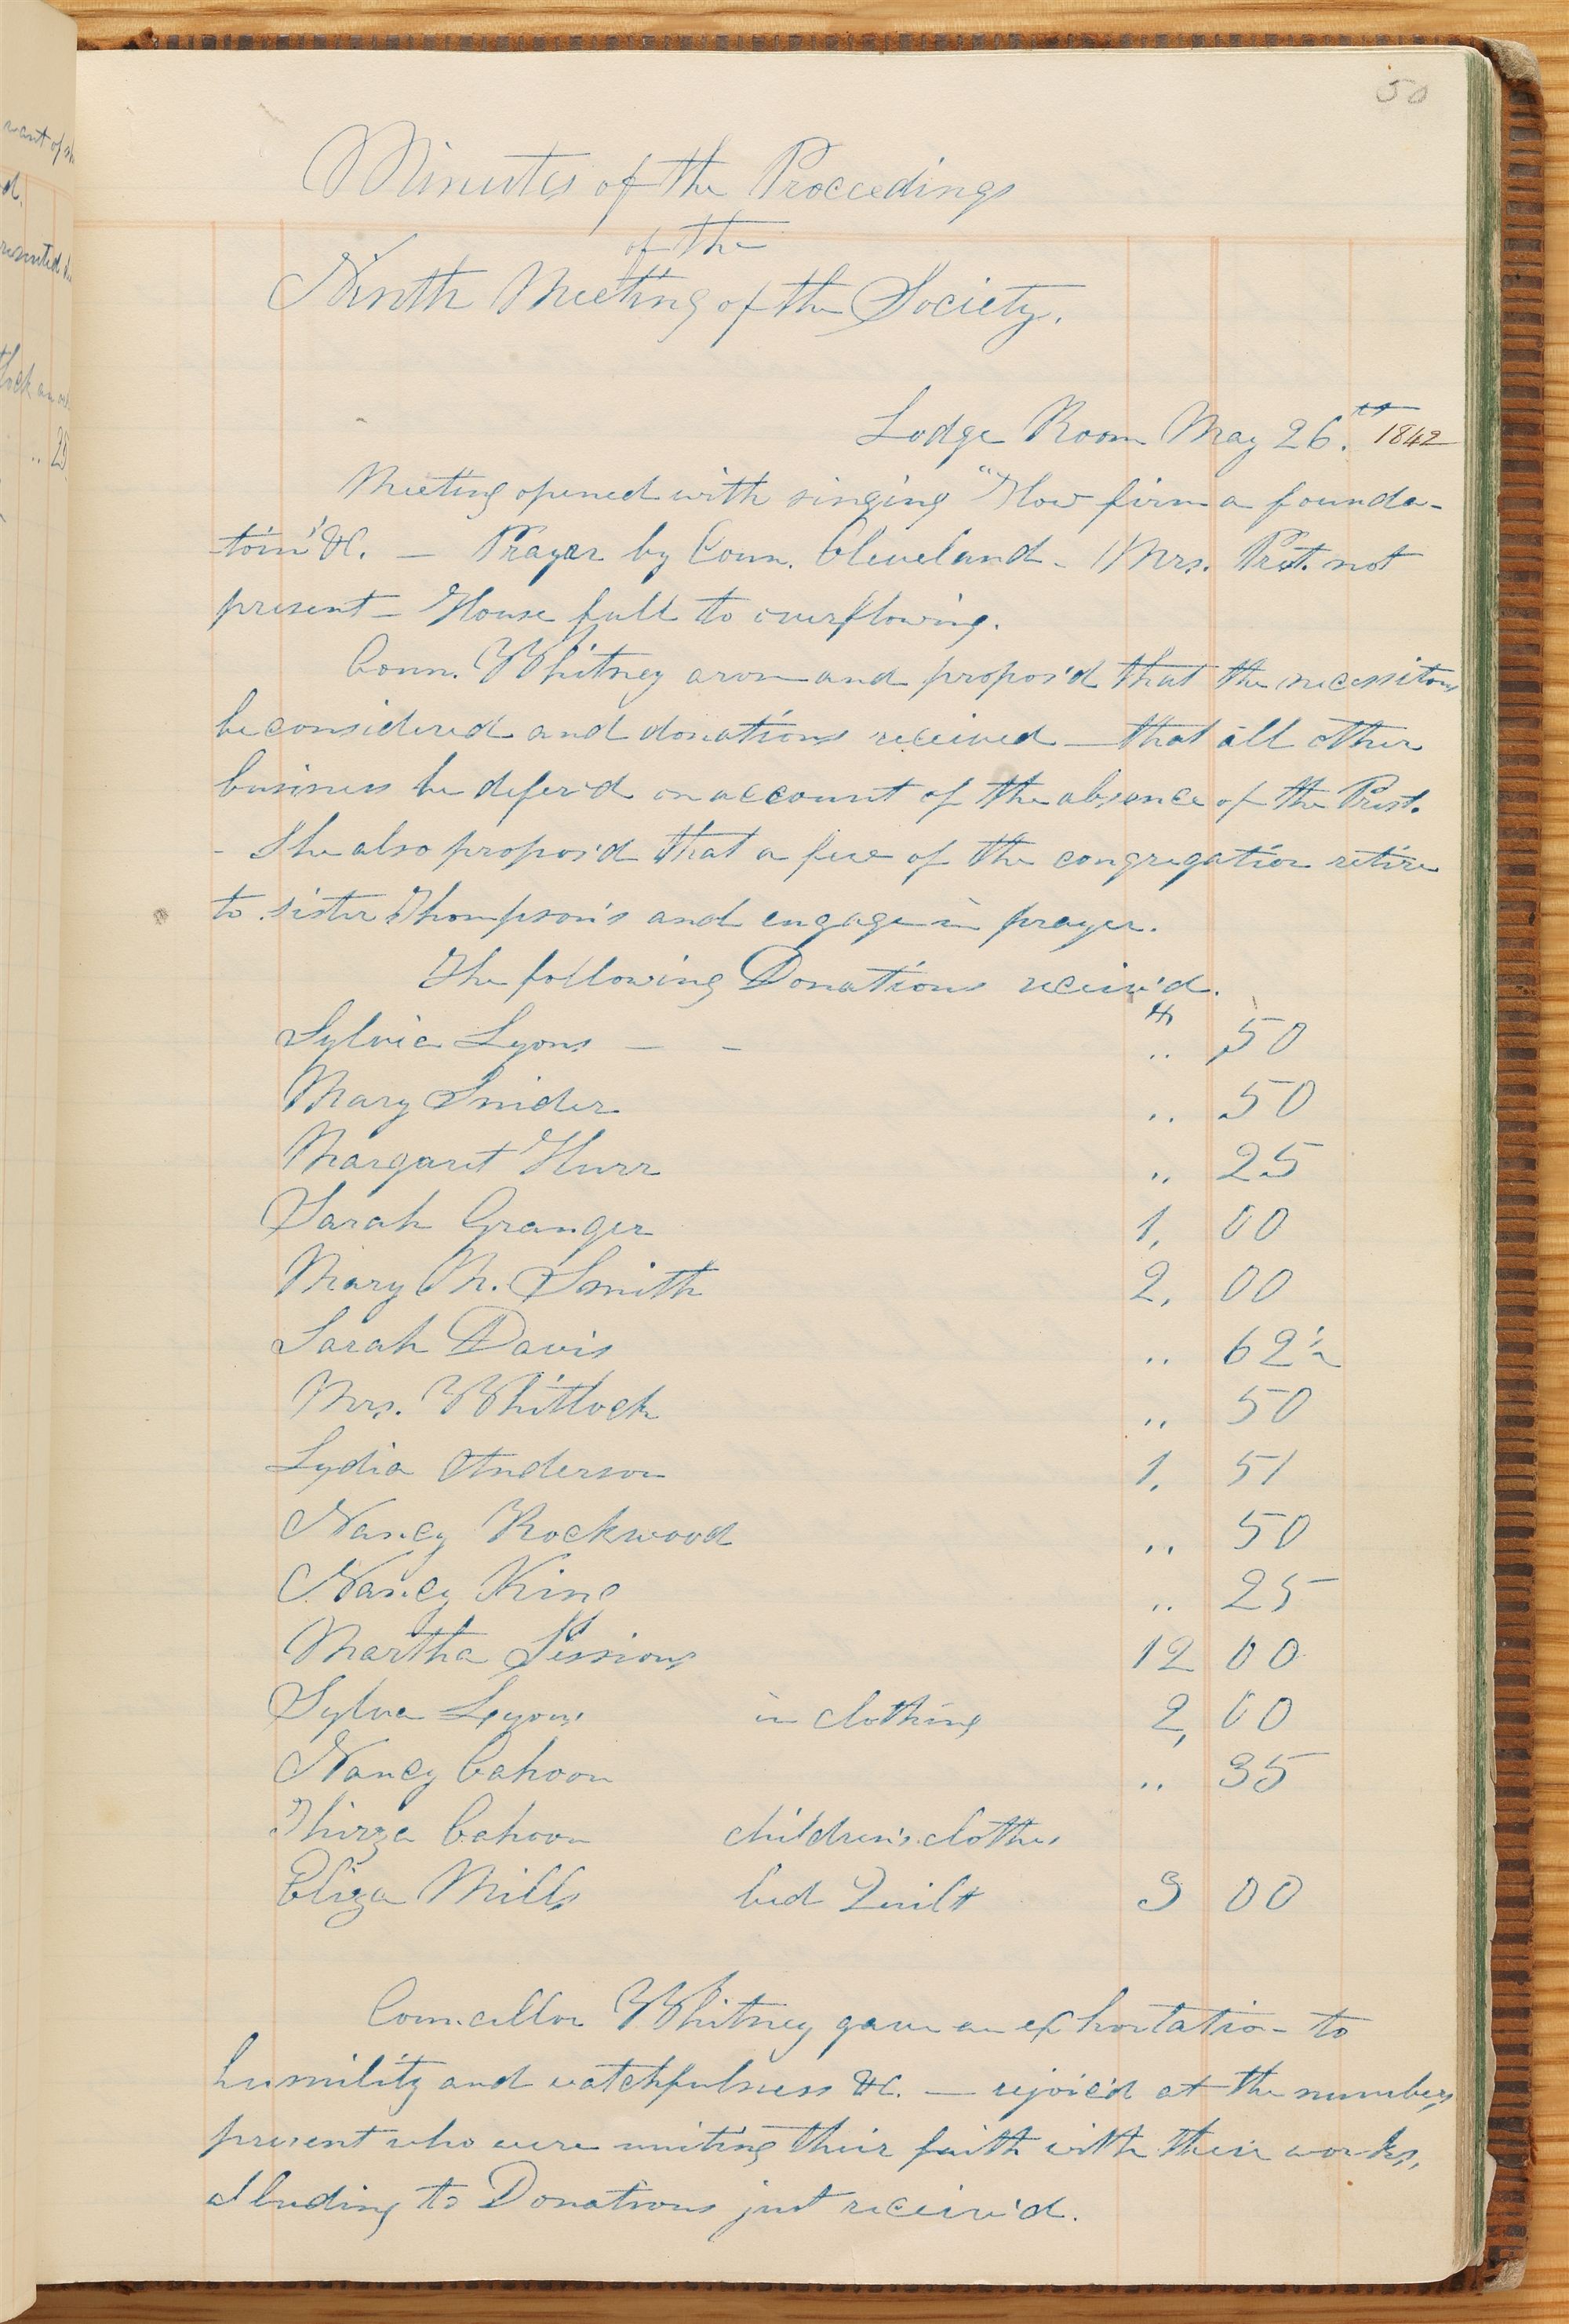 50
Minutes of the Proceedings
of the
Ninth Meeting of the Society.
Lodge Room May 26.th 1842
Meeting opened with singing "How firm a founda-
toin" &C. — Prayer by Coun. Cleveland - Mrs. Prest. not
present - House full to overflowing.
Coun. Whitney arose and propos'd that the necessitous
be considered and donations received — that all other
business be defer'd on account of the absence of the Prest.
- She also propos'd that a few of the congregation retire
to sister Thompson's and engage in prayer.
The following Donations receiv'd.
Sylvia Lyons — - .. 50
Mary Snider .. 50
Margaret Hurr .. 25
Sarah Granger 1, 00
Mary M. Smith 2, 00
Sarah Davis .. 62½
Mrs. Whitlock .. 50
Lydia Anderson 1. 51
Nancy Rockwood .. 50
Nancy King .. 25
Martha Sessions 12 00
Sylva Lyons in clothing 2, 00
Nancy Cahoon .. 35
Thirza Cahoon children's clothes
Eliza Mills bed Quilt 3 00
Councillor Whitney gave an exhortation to
humility and watchfulness &C. — rejoic'd at the numbers
present who were uniting their faith with their works,
aluding to Donations just receiv'd.
want of
d.
.. 25